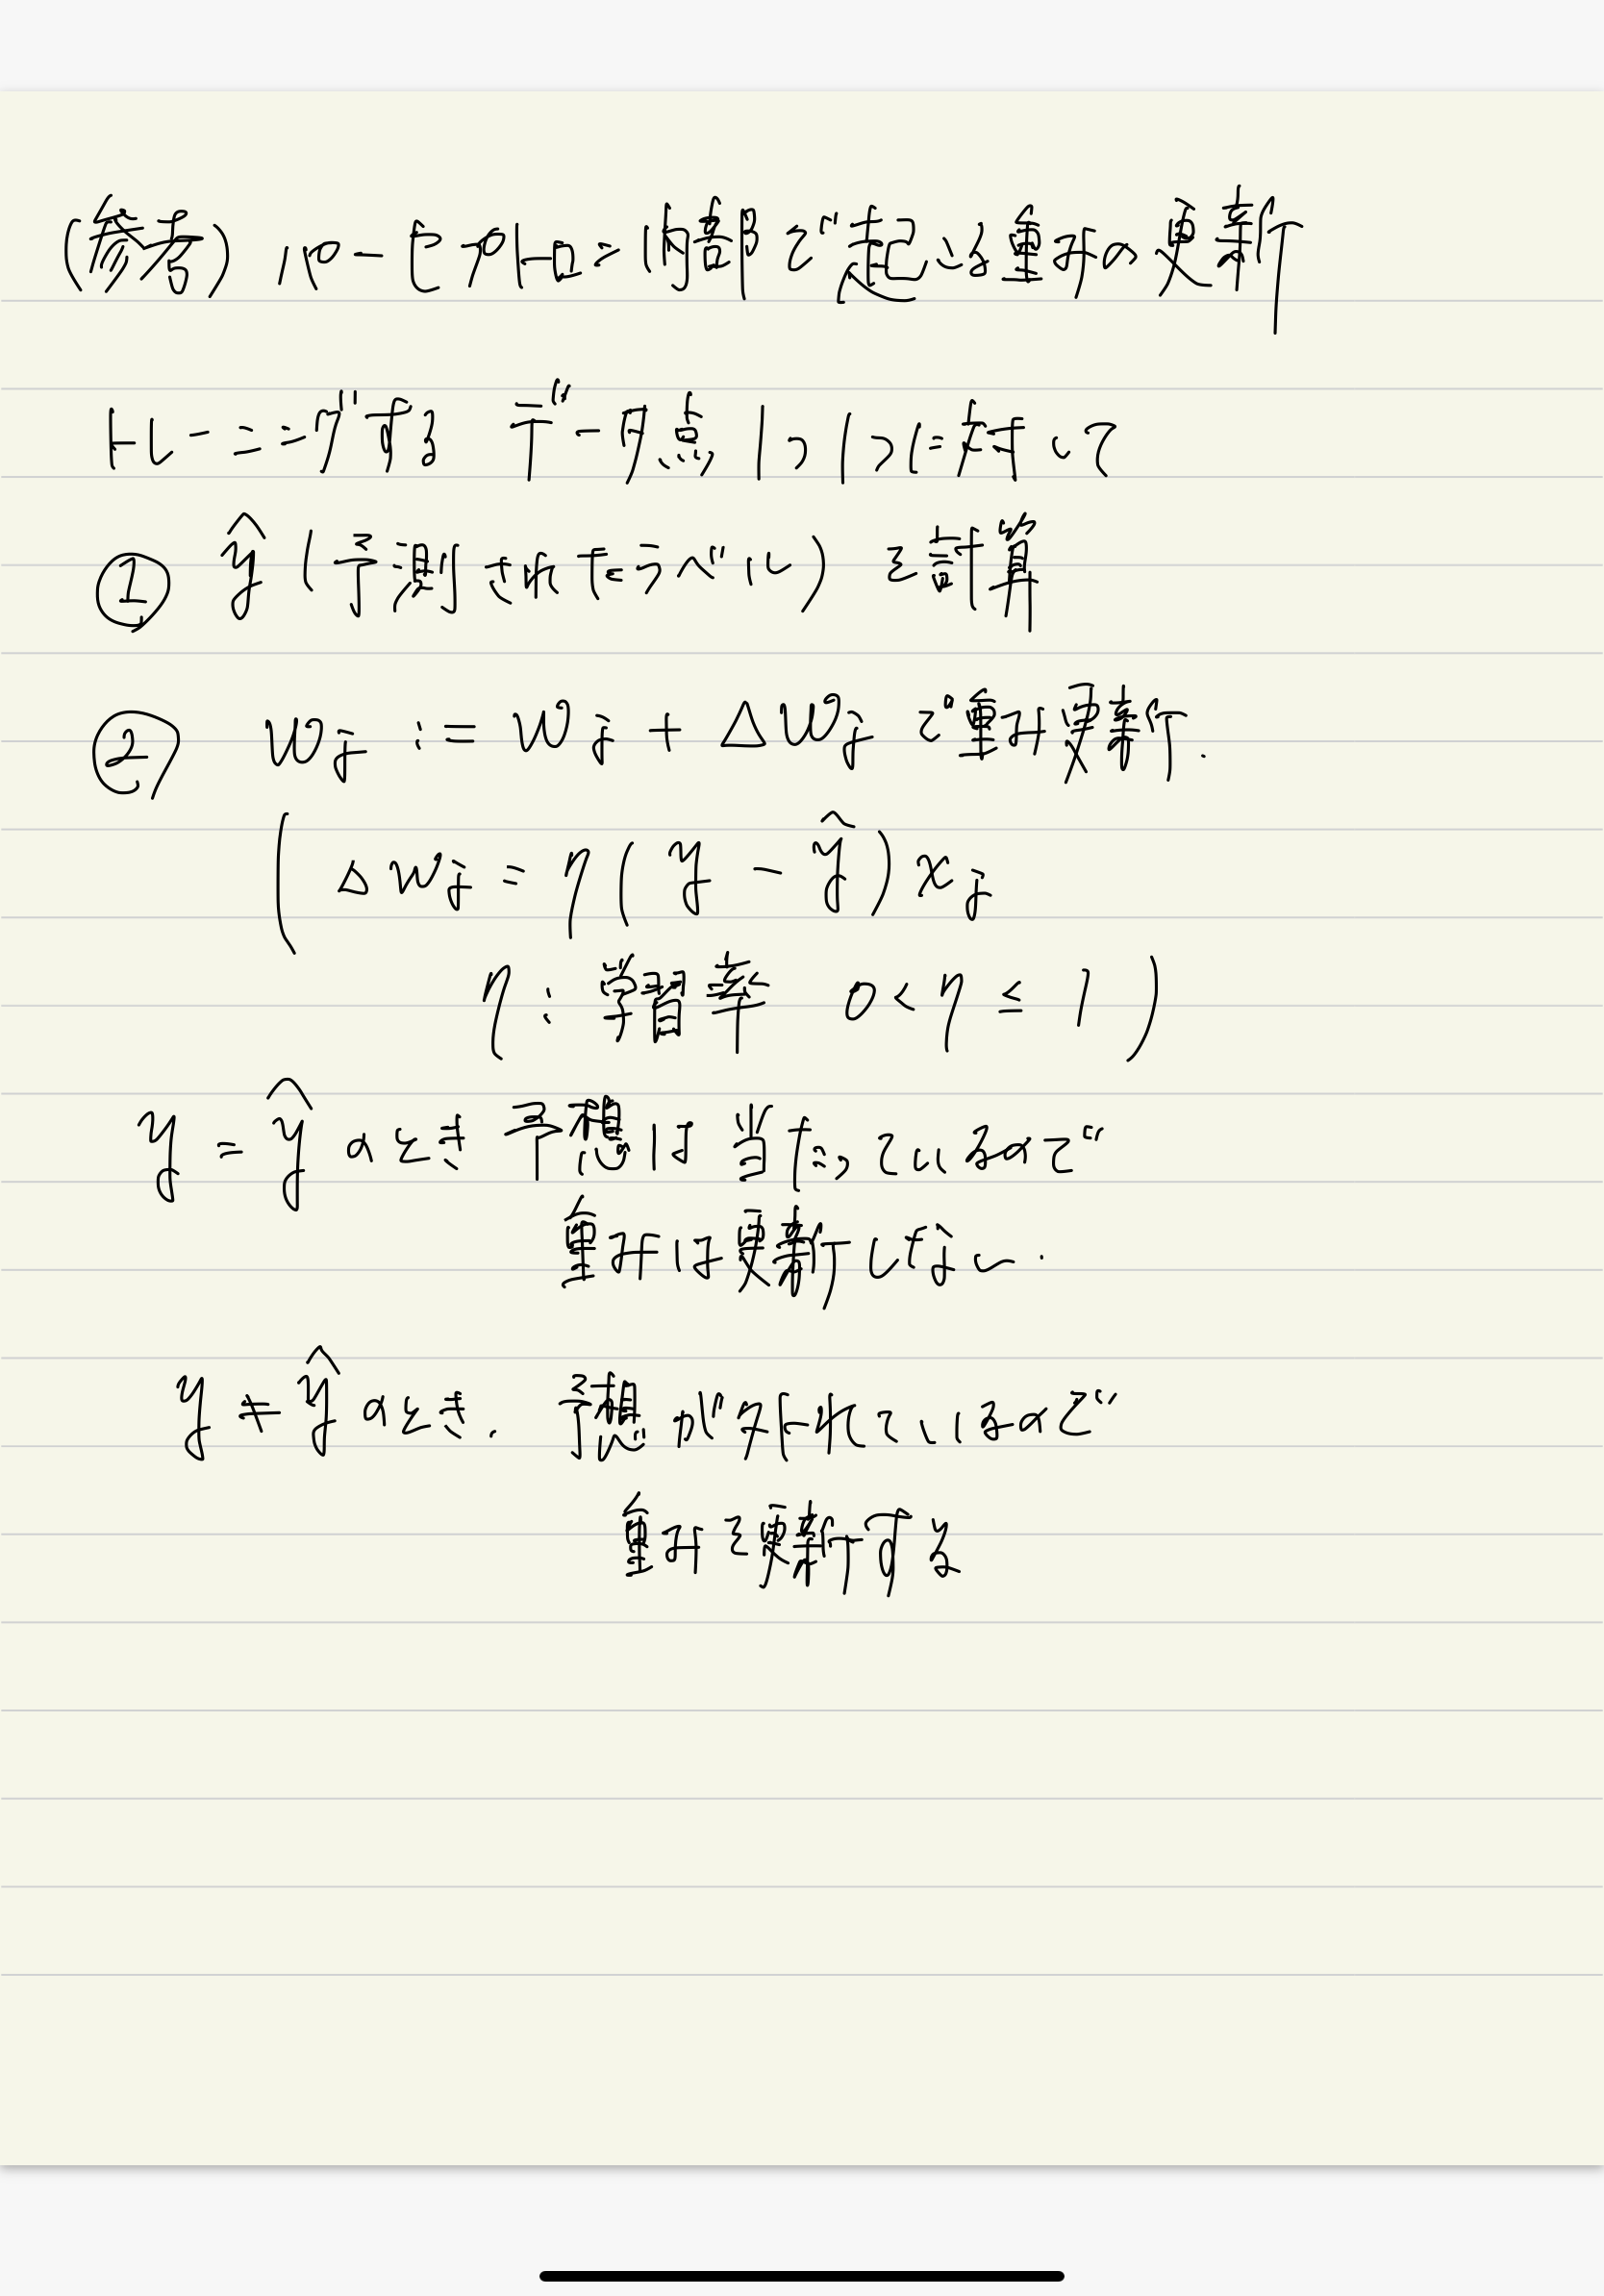 (参考) パーセプトロン内部で起こる重みの更新
トレーニングする データ点 1つ1つに対して
① ŷ (予測されたラベル) を計算
② wj := wj + Δwj で重み更新.
( Δwj = η( y - ŷ ) xj
η : 学習率 0 < η ≤ 1 )
y = ŷ のとき 予想は 当たっているので
重みは更新しない.
y ≠ ŷ のとき. 予想が外れているので
重みを更新する